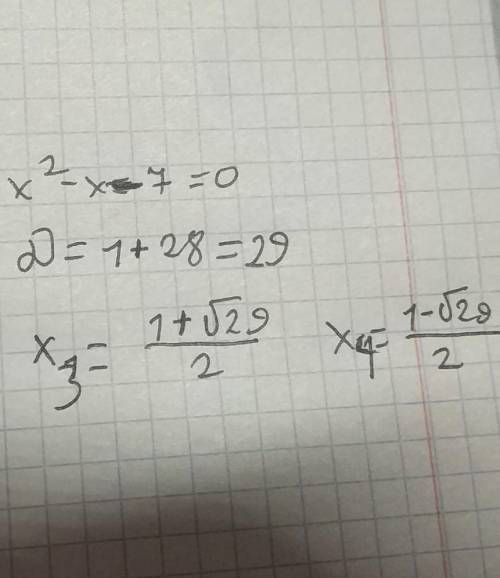 x² - x - 7 = 0
D = 1 + 28 = 29
x₃ = (1 + √29)/2  x₄ = (1 - √29)/2